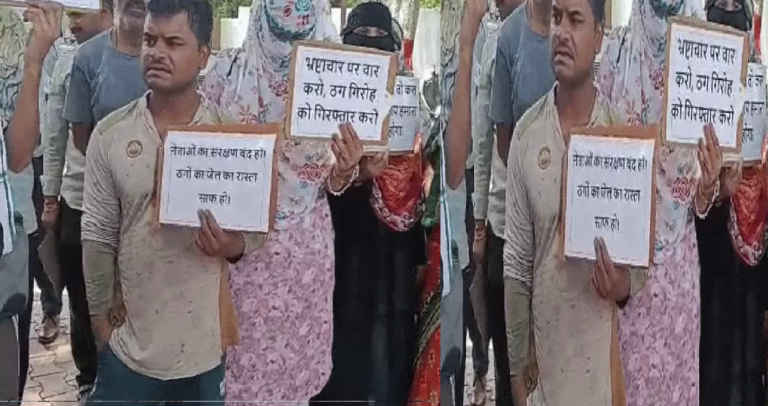 नेताओं का संरक्षण बंद हो।
ठगों का जेल का रास्ता
साफ हो।
भ्रष्टाचार पर वार
करो, ठग गिरोह
को गिरफ्तार करो
नेताओं का संरक्षण बंद हो।
ठगों का जेल का रास्ता
साफ हो।
भ्रष्टाचार पर वार
करो, ठग गिरोह
को गिरफ्तार करो
वो कल
हमारा
होगा।